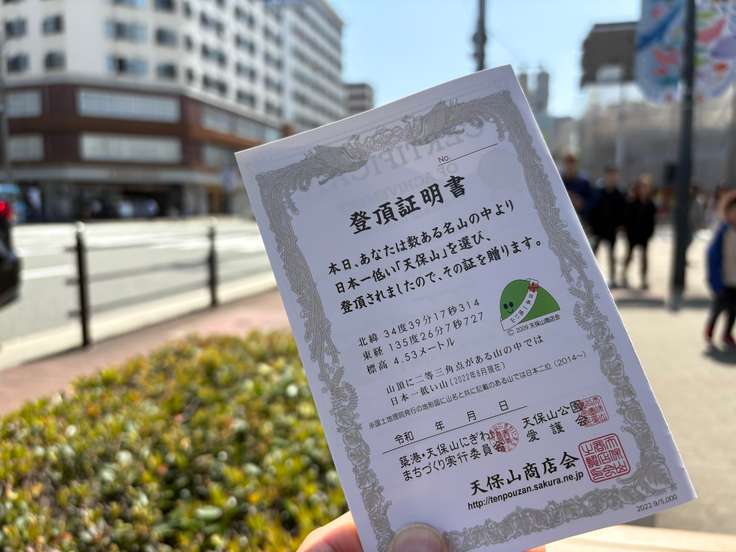 No.
登頂証明書
本日、あなたは数ある名山の中より
日本一低い「天保山」を選び、
登頂されましたので、その証を贈ります。
北緯 34度39分17秒314
東経 135度26分7秒727
標高 4.53メートル
© 2009 天保山商店会
山頂に二等三角点がある山の中では
日本一低い山(2022年8月現在)
※国土地理院発行の地形図に山名と共に記載のある山では日本二位(2014〜)
令和 年 月 日
築港・天保山にぎわい
まちづくり実行委員会
天保山公園
愛護会
天保山商店会
http://tenpouzan.sakura.ne.jp
2022.9/5,000